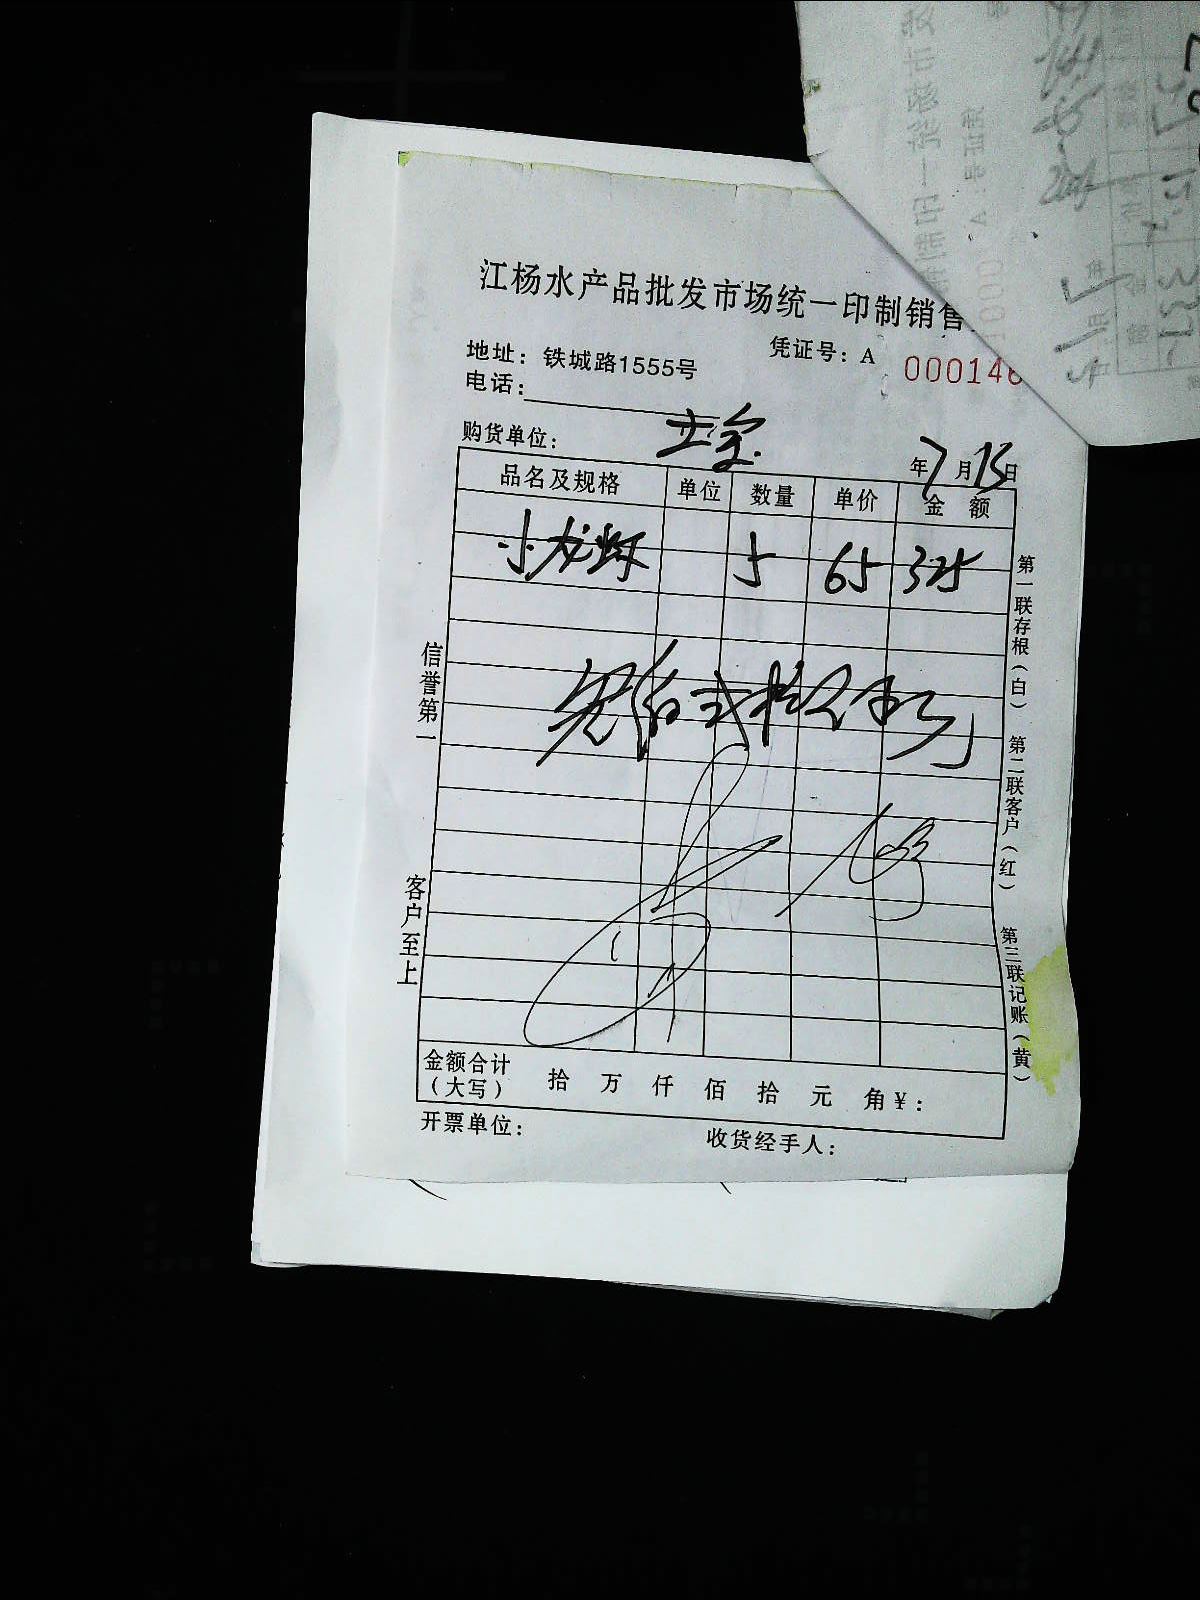 江杨水产品批发市场统一印制销售
地址：铁城路1555号
凭证号：A 000146
电话：
购货单位：
年7月15日
品名及规格 单位 数量 单价 金额
小龙虾 5 65 325
叁佰弍拾伍元
信誉第一
客户至上
第一联存根（白）
第二联客户（红）
第三联记账（黄）
金额合计（大写） 拾 万 仟 佰 拾 元 角 ¥：
开票单位：
收货经手人：